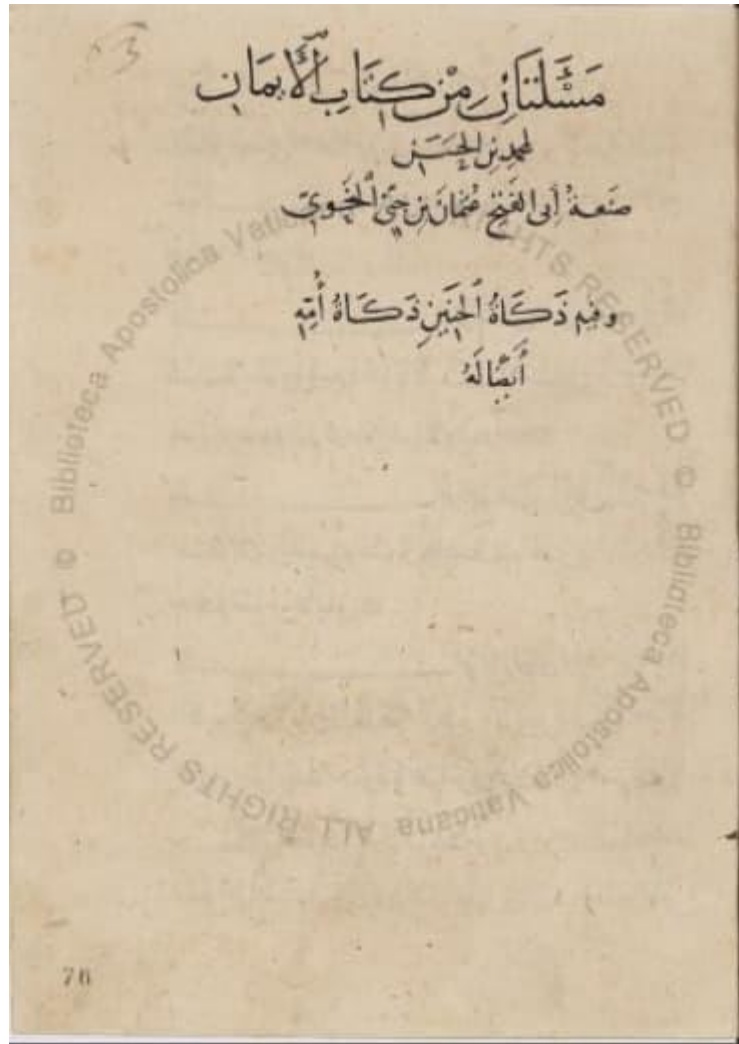 مَسْأَلَتَانِ مِنْ كِتَابِ الْأَيْمَانِ
لمحمد بن الحسن
صَنعةُ أبي الفتح عُثمانَ بنِ جِنّي النَّحْويّ
وفيه ذَكَاةُ الجَنِينِ ذَكَاةُ أُمِّهِ
أَيضًا لَهُ
76
© Biblioteca Apostolica Vaticana ALL RIGHTS RESERVED © Biblioteca Apostolica Vaticana ALL RIGHTS RESERVED